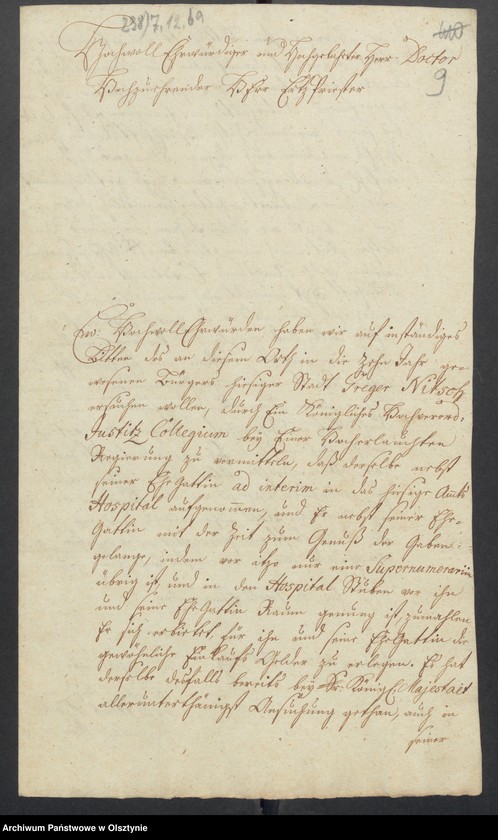 238)7,12,69
9
Hochwoll Ehrwürdiger und Hochgelahrter Herr Doctor
Hochzuehrender Herr Ertzpriester
Ew: HochwollEhrwürden haben wir auf inständiges
Bitten des an diesem Orth in die zehn Jahr ge-
wesenen Bürgers hiesiger Stadt Greger Nitsch
ersuchen wollen, durch Ein Königliches
Justitz Collegium bey Einer Hocherlauchten
Regierung zu vermitteln, daß derselbe nebst
seiner EheGattin ad interim in das hiesige Amts
Hospital aufgenommen, und Er nebst seiner Ehe-
Gattin mit der Zeit zum Genuß der Gaben
gelange, indem vor itzo nur eine Supernumerariin
übrig ist, und in den Hospital Stuben vor ihn
und seine EheGattin Raum genung ist, zumahlen
Er sich erbietet, für ihn und seine EheGattin die
gewöhnliche Einkaufs Gelder zu erlegen. Er hat
derselbe desfalls bereits bey Sr: Königl: Majestaet
allerunterthänigst Ansuchung gethan, auch in
seiner
Archiwum Państwowe w Olsztynie